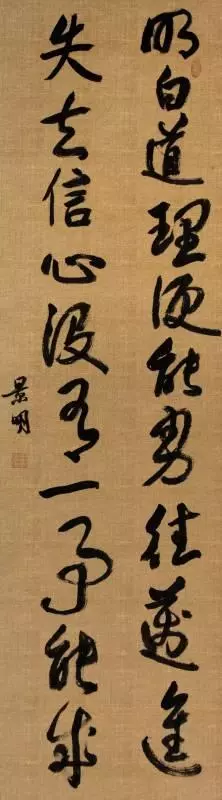 明白道理便能勇往迈進
失去信心没有一事能成
景明